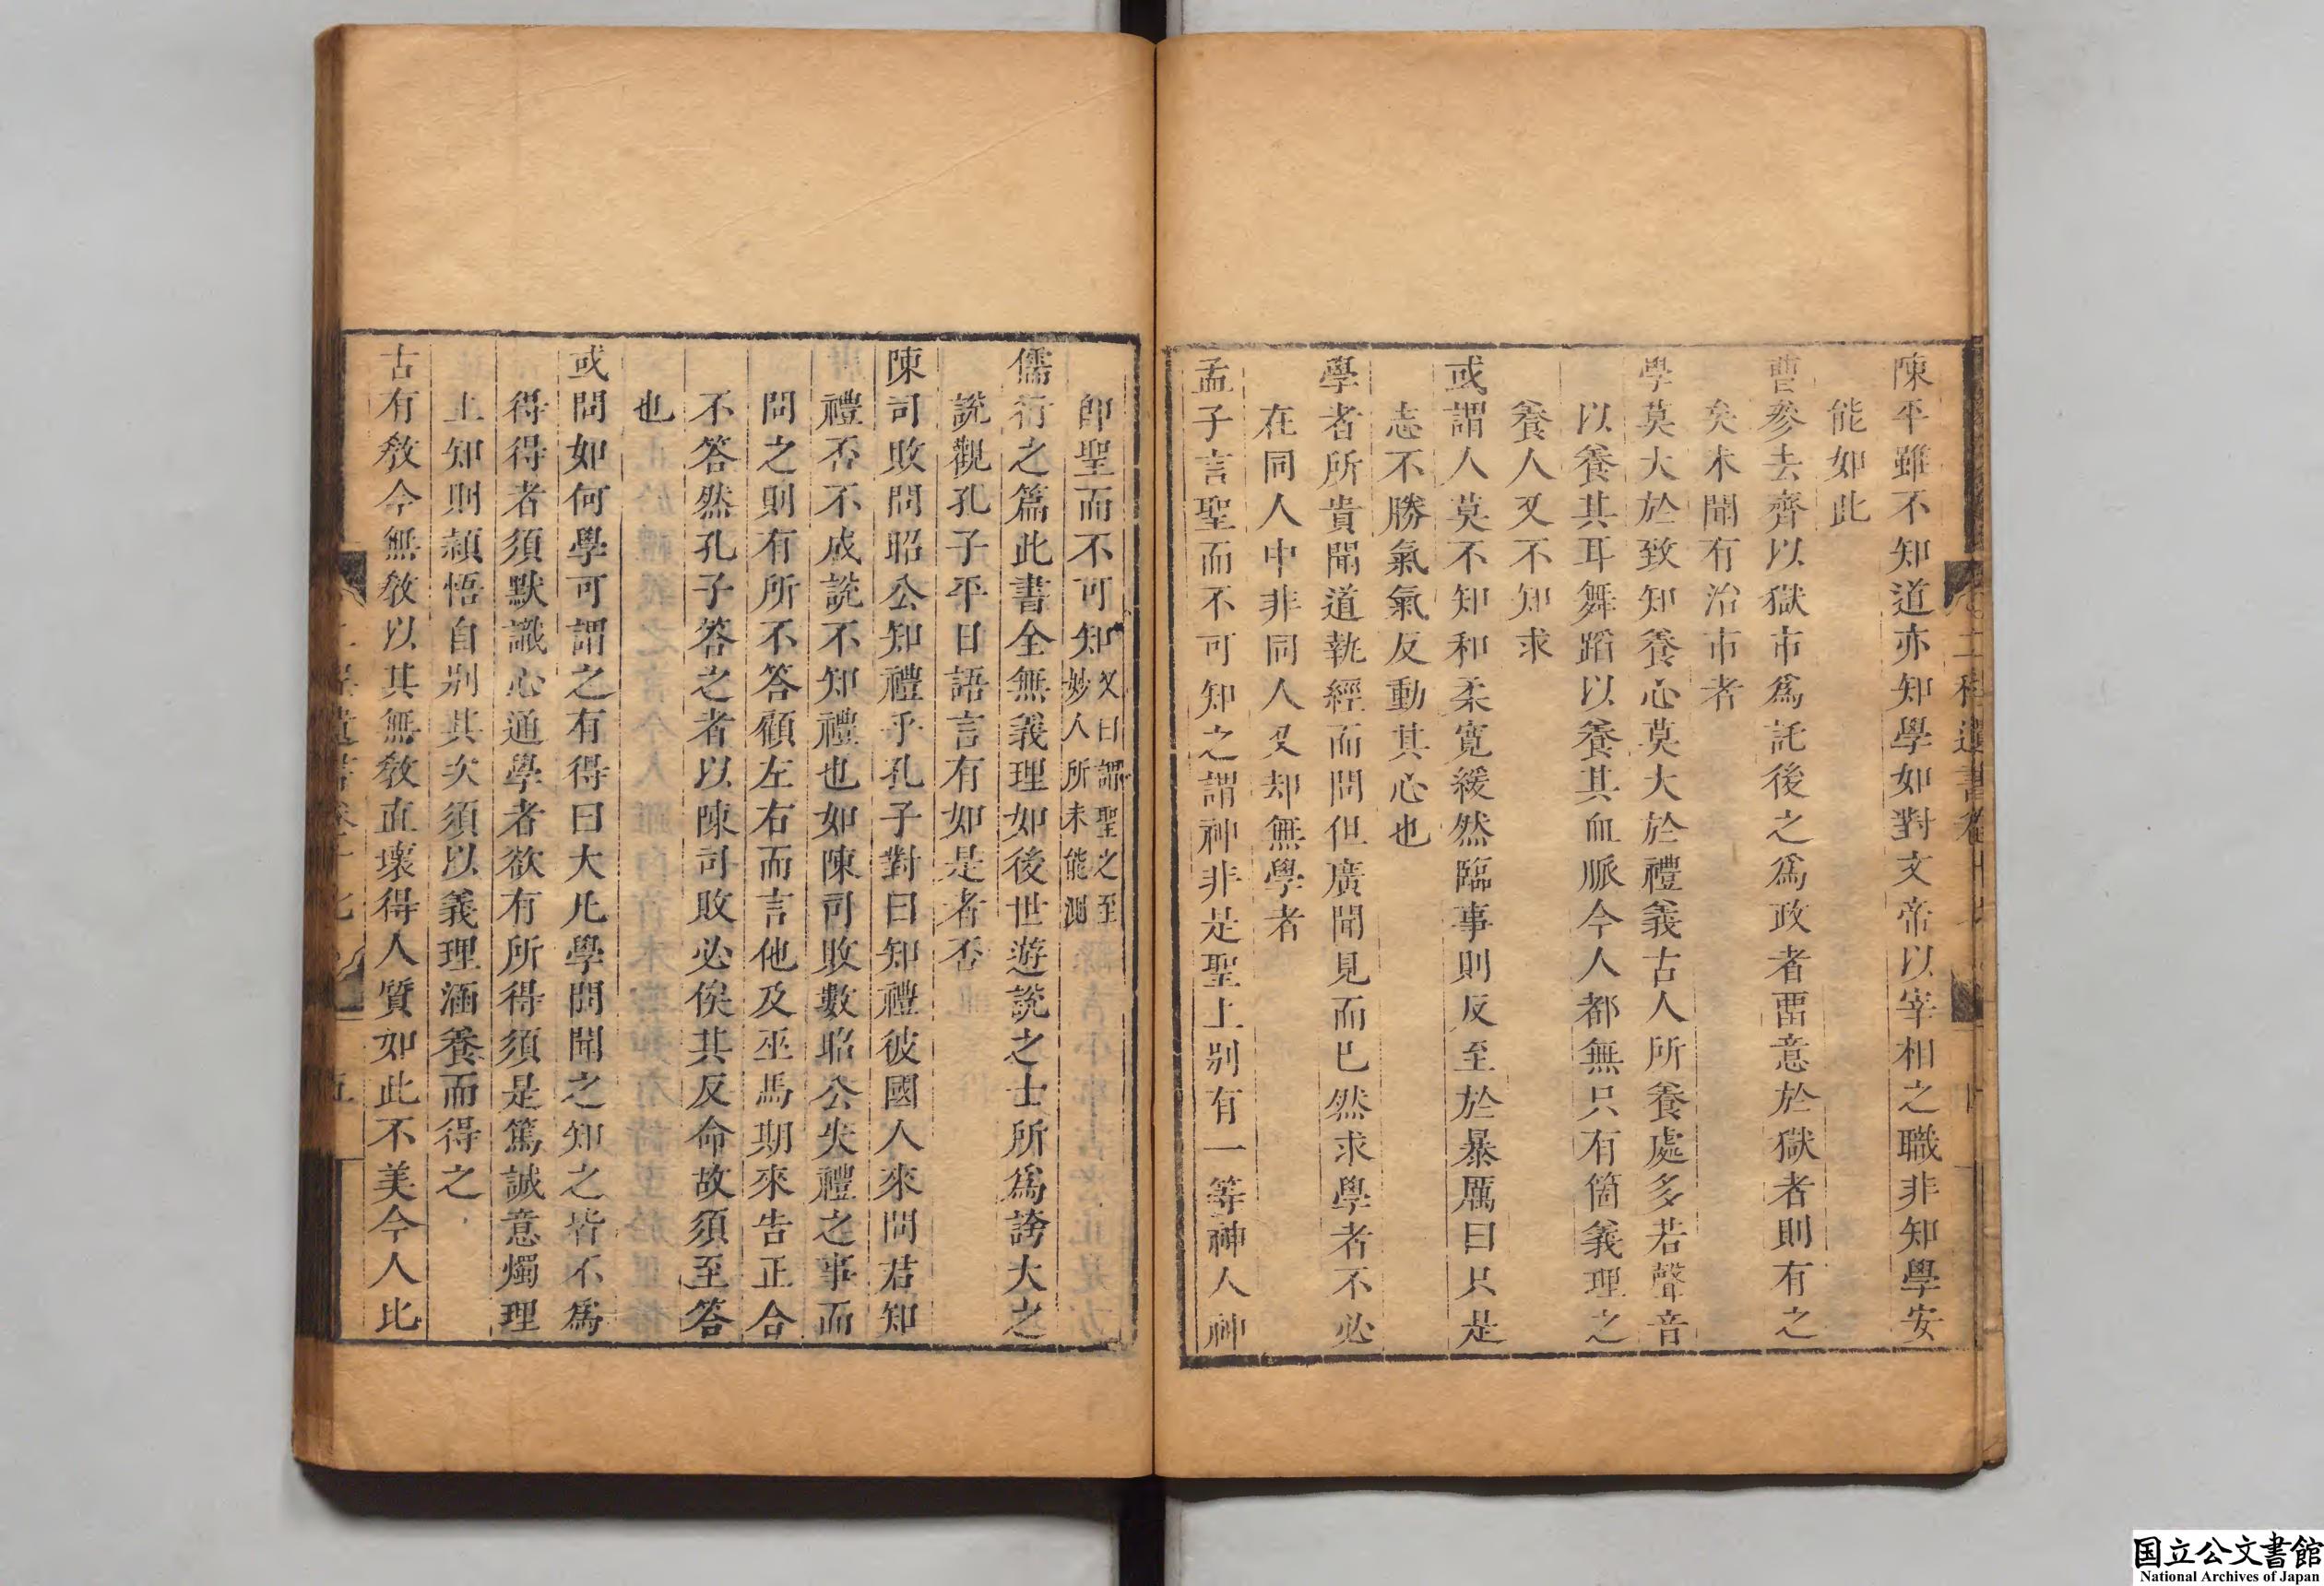 陳平雖不知道亦知學如對文帝以宰相之職非知學安
能如此
曹參去齊以獄市爲託後之爲政者畱意於獄者則有之
矣未聞有治市者
學莫大於致知養心莫大於禮義古人所養處多若聲音
以養其耳舞蹈以養其血脈今人都無只有箇義理之
養人又不知求
或謂人莫不知和柔寬緩然臨事則反至於暴厲曰只是
志不勝氣氣反動其心也
學者所貴聞道執經而問但廣聞見而已然求學者不必
在同人中非同人又却無學者
孟子言聖而不可知之謂神非是聖上別有一等神人神
卽聖而不可知又曰謂聖之至
妙人所未能測
儒行之篇此書全無義理如後世遊說之士所爲誇大之
說觀孔子平日語言有如是者否
陳司敗問昭公知禮乎孔子對曰知禮彼國人來問君知
禮否不成說不知禮也如陳司敗數昭公失禮之事而
問之則有所不答顧左右而言他及巫馬期來告正合
不答然孔子答之者以陳司敗必俟其反命故須至答
也
或問如何學可謂之有得曰大凡學問聞之知之皆不爲
得得者須默識心通學者欲有所得須是篤誠意燭理
上知則頴悟自別其次須以義理涵養而得之
古有敎今無敎以其無敎直壞得人質如此不美今人比
国立公文書館
National Archives of Japan